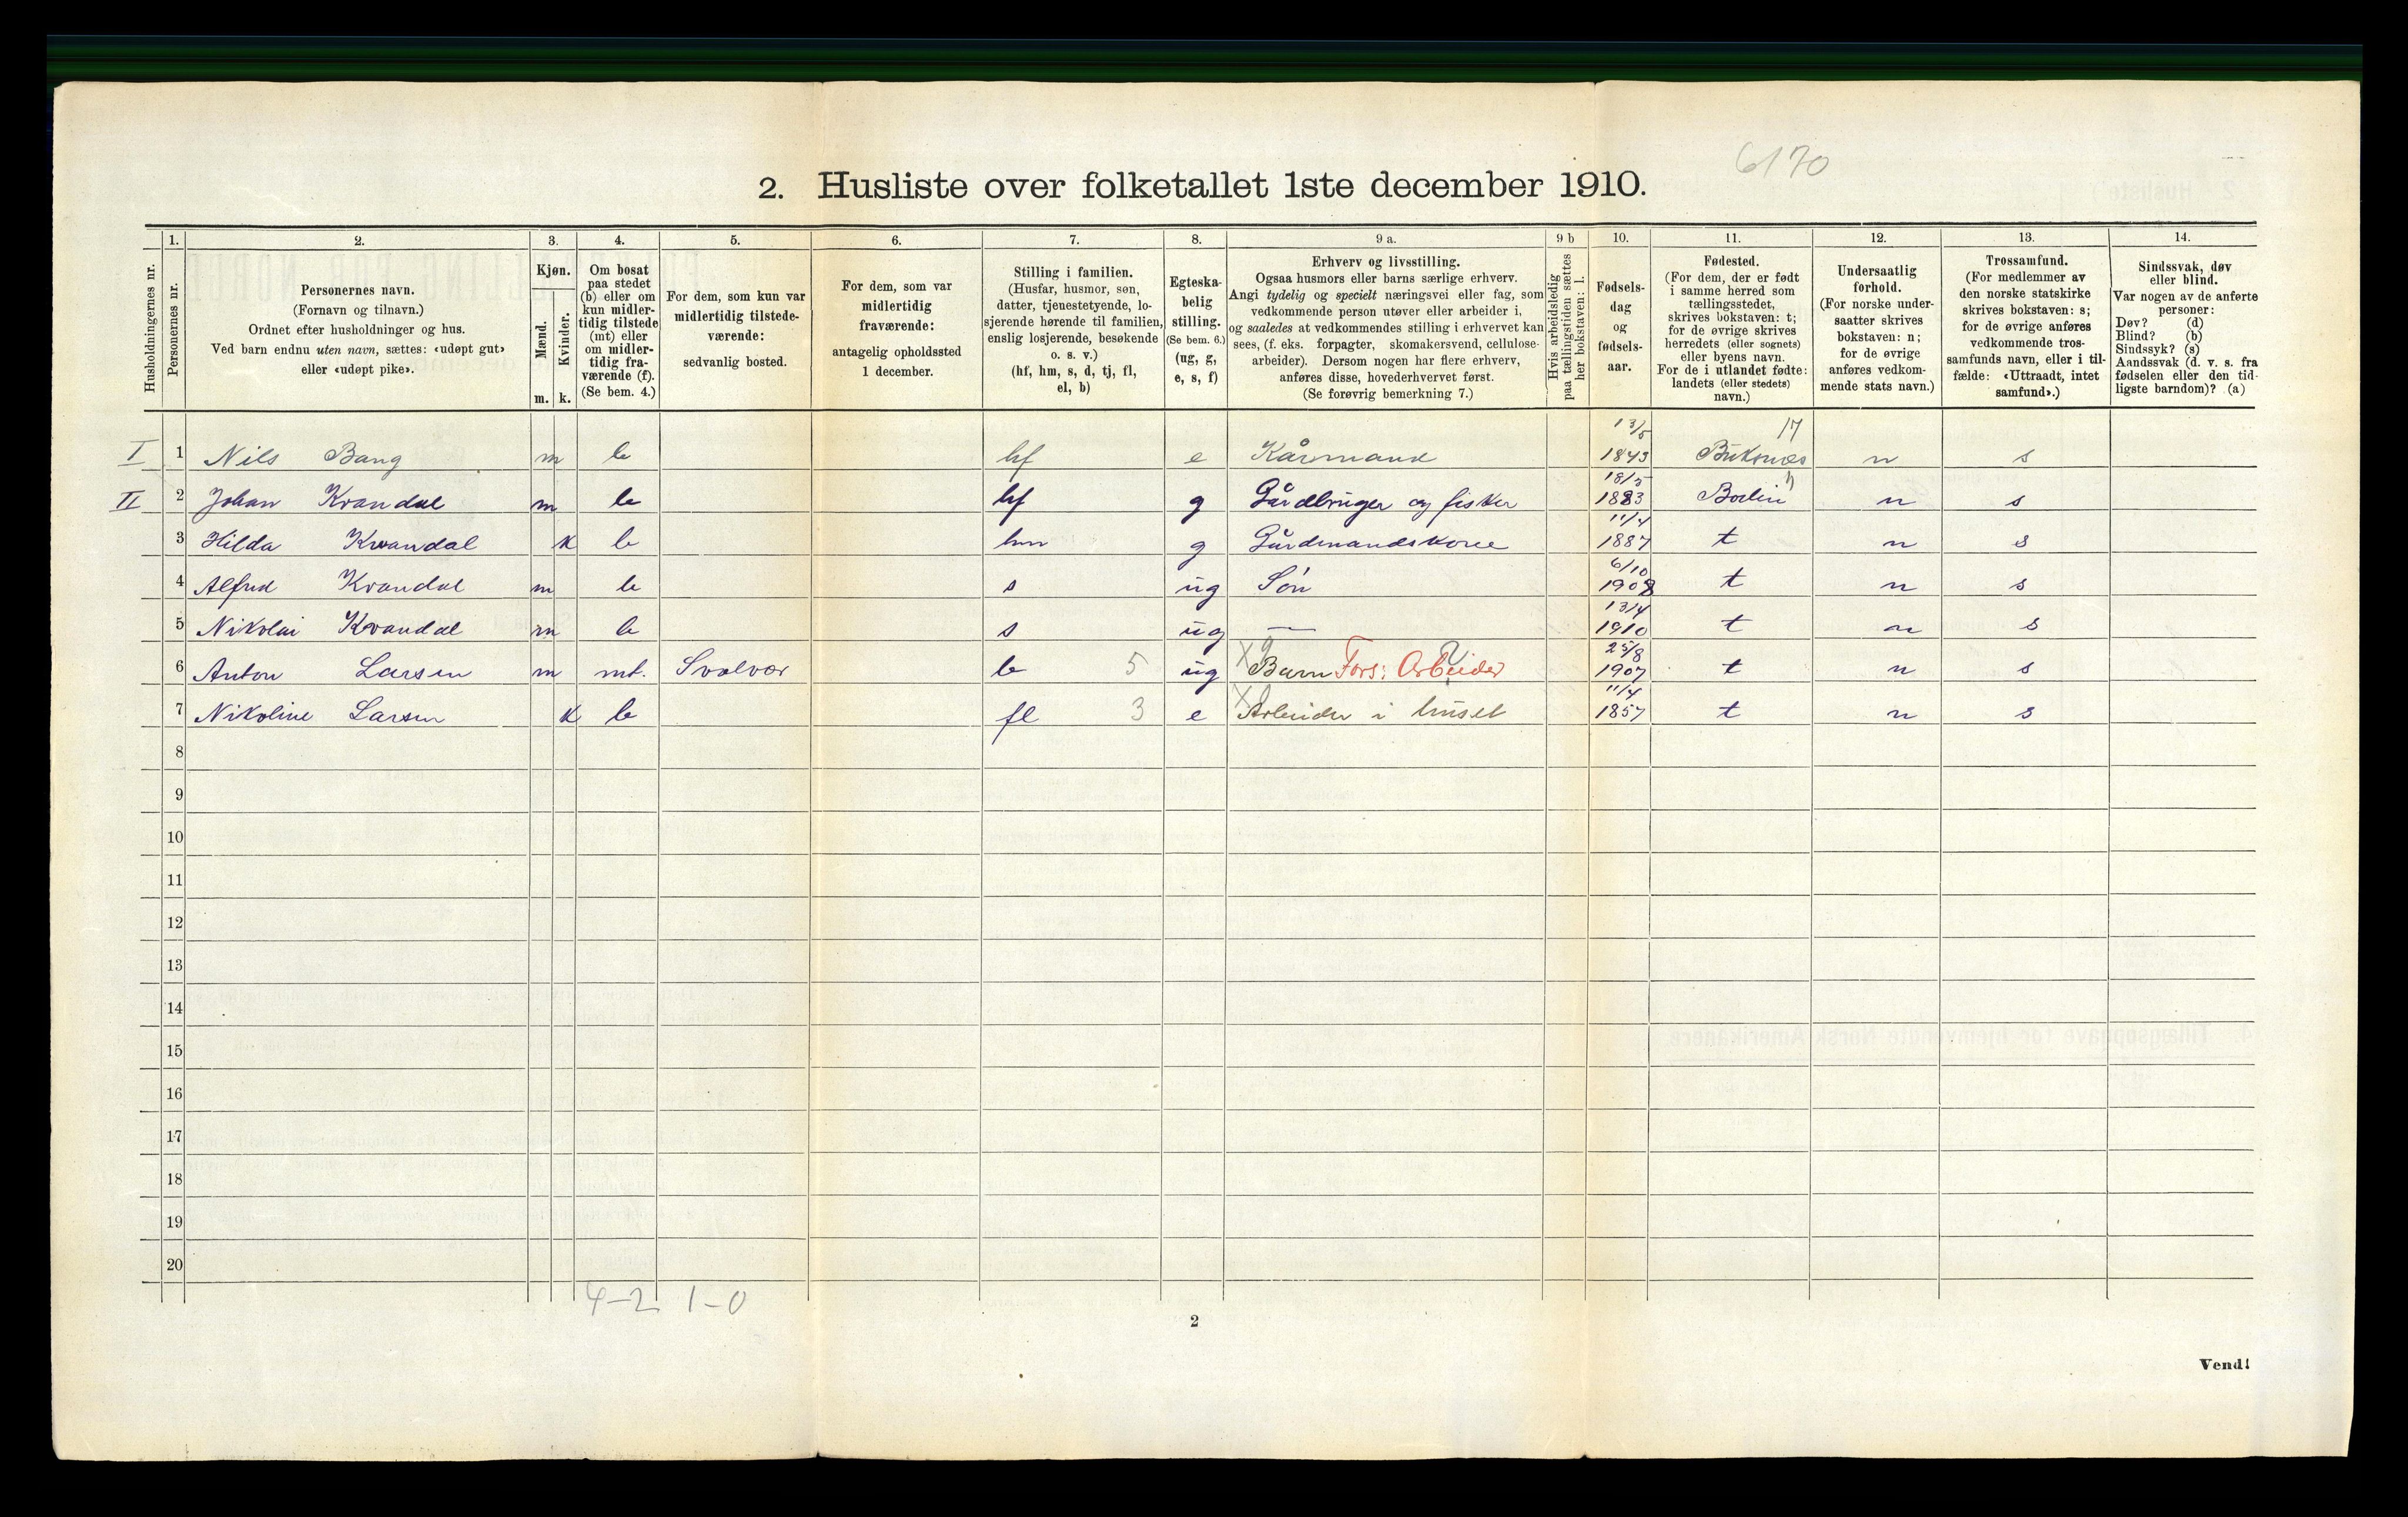 6170
2. Husliste over folketallet 1ste december 1910.
1. 2. 3. 4. 5. 6. 7. 8. 9 a. 9 b 10. 11. 12. 13. 14.
Husholdningernes nr.
Personernes nr.
Personernes navn.
(Fornavn og tilnavn.)
Ordnet efter husholdninger og hus.
Ved barn endnu uten navn, sættes: «udøpt gut»
eller «udøpt pike».
Kjøn.
Mænd.
Kvinder.
m. k.
Om bosat
paa stedet
(b) eller om
kun midler-
tidig tilstede
(mt) eller
om midler-
tidig fra-
værende (f).
(Se bem. 4.)
For dem, som kun var
midlertidig tilstede-
værende:
sedvanlig bosted.
For dem, som var
midlertidig
fraværende:
antagelig opholdssted
1 december.
Stilling i familien.
(Husfar, husmor, søn,
datter, tjenestetyende, lo-
sjerende hørende til familien,
enslig losjerende, besøkende
o. s. v.)
(hf, hm, s, d, tj, fl,
el, b)
Egteska-
belig
stilling.
(Se bem. 6.)
(ug, g,
e, s, f)
Erhverv og livsstilling.
Ogsaa husmors eller barns særlige erhverv.
Angi tydelig og specielt næringsvei eller fag, som
vedkommende person utøver eller arbeider i,
og saaledes at vedkommendes stilling i erhvervet kan
sees, (f. eks. forpagter, skomakersvend, cellulose-
arbeider). Dersom nogen har flere erhverv,
anføres disse, hovederhvervet først.
(Se forøvrig bemerkning 7.)
Hvis arbeidsledig
paa tællingstiden sættes
her bokstaven: l.
Fødsels-
dag
og
fødsels-
aar.
Fødested.
(For dem, der er født
i samme herred som
tællingsstedet,
skrives bokstaven: t;
for de øvrige skrives
herredets (eller sognets)
eller byens navn.
For de i utlandet fødte:
landets (eller stedets)
navn.)
Undersaatlig
forhold.
(For norske under-
saatter skrives
bokstaven: n;
for de øvrige
anføres vedkom-
mende stats navn.)
Trossamfund.
(For medlemmer av
den norske statskirke
skrives bokstaven: s;
for de øvrige anføres
vedkommende tros-
samfunds navn, eller i til-
fælde: «Uttraadt, intet
samfund».)
Sindssvak, døv
eller blind.
Var nogen av de anførte
personer:
Døv? (d)
Blind? (b)
Sindssyk? (s)
Aandssvak (d. v. s. fra
fødselen eller den tid-
ligste barndom)? (a)
I 1 Nils Bang m b hf e Kårmand 13/5 1843 Buksnes 17 n s
II 2 Johan Kvandal m b hf g Gårdbruger og fisker 18/5 1883 Bodin n s
3 Hilda Kvandal k b hm g Gårdmandskone 11/4 1887 t n s
4 Alfred Kvandal m b s ug Søn 6/10 1908 t n s
5 Nikolai Kvandal m b s ug — 13/4 1910 t n s
6 Anton Larsen m mt. Svolvær b 5 ug Barn Fors: Arbeider 25/8 1907 t n s
7 Nikoline Larsen k b fl 3 e Arbeider i huset 11/4 1857 t n s
8
9
10
11
12
13
14
15
16
17
18
19
20
4-2 1-0
2
Vend!